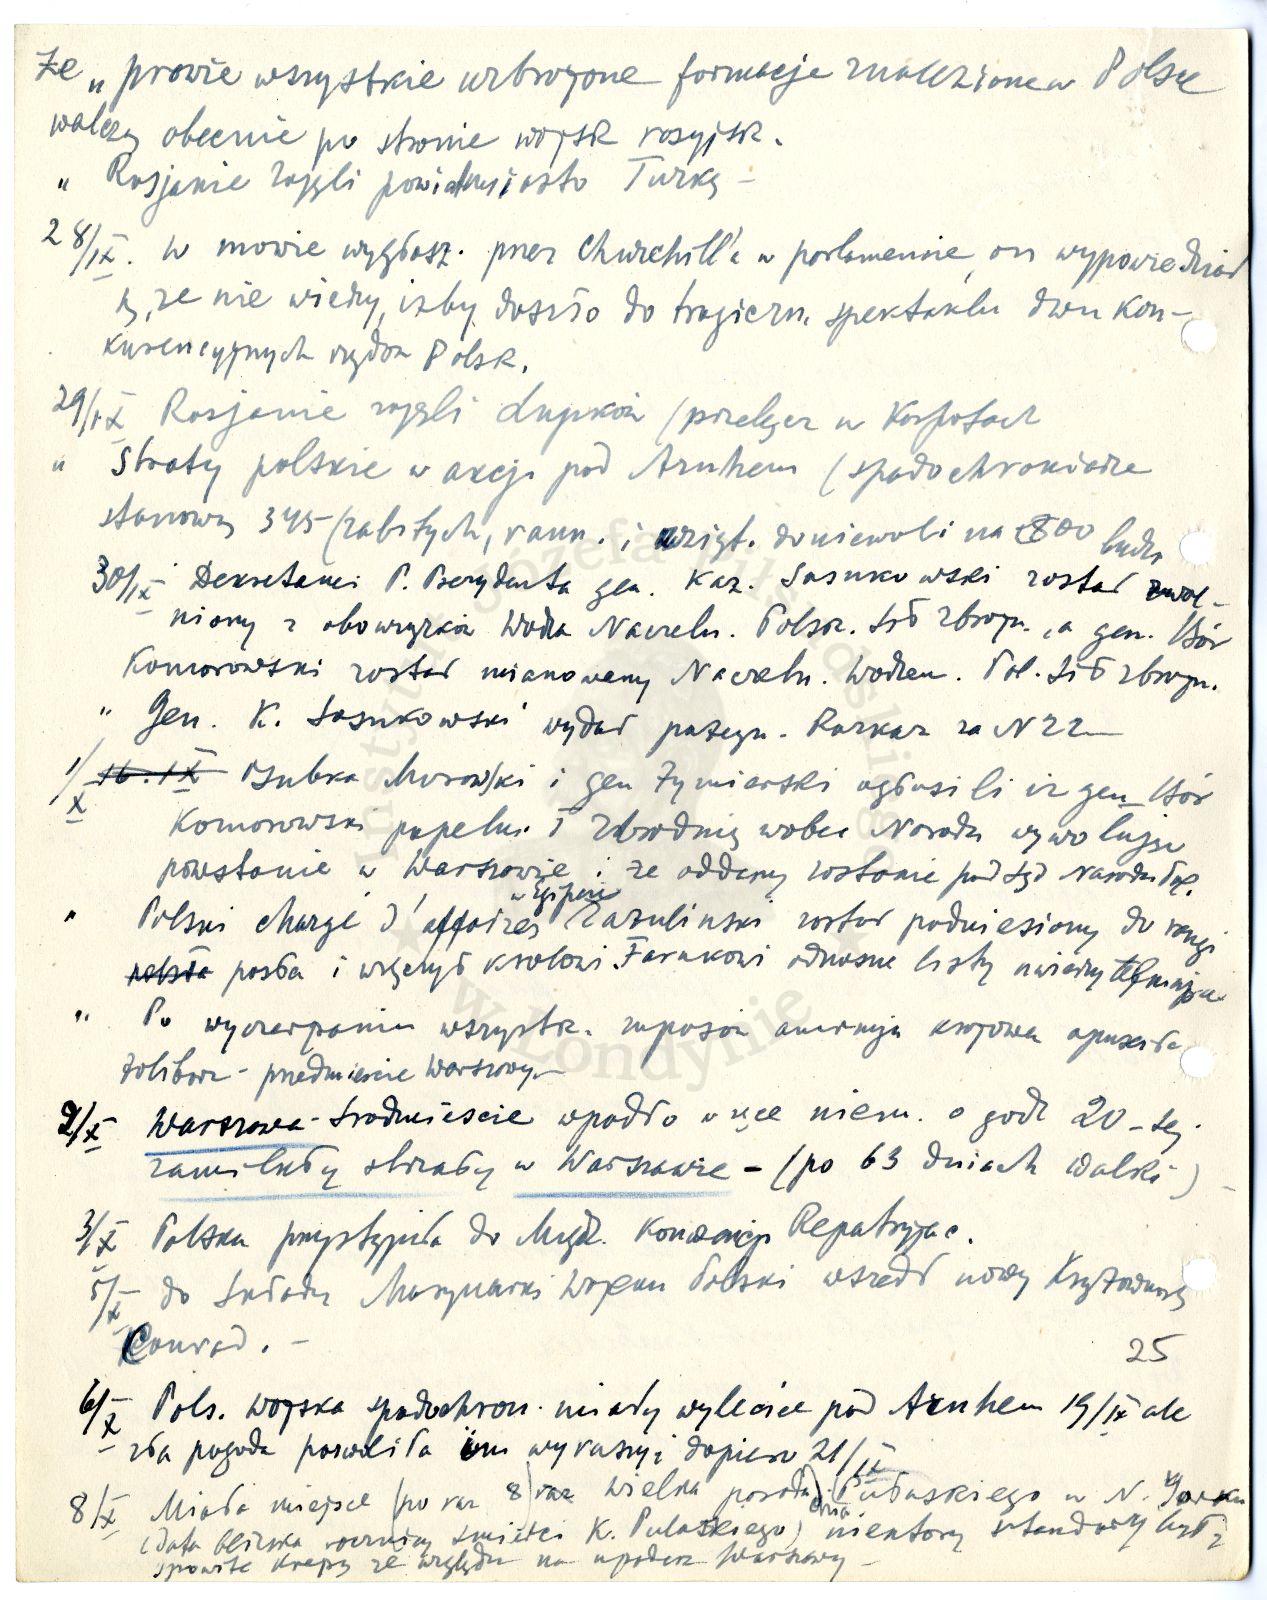 że „prawie wszystkie uzbrojone formacje znalezione w Polsce
walczą obecnie po stronie wojsk rosyjsk.
" Rosjanie zajęli powiat. miasto Turkę –
28/IX. W mowie wygłosz. przez Churchill'a w parlamencie, on wypowiedział
że nie wierzy, iżby doszło do tragiczn. spektaklu dwu kon-
kurencyjnych rządów Polsk.
29/IX Rosjanie zajęli Łupków (przełęcz w Karpatach
" Straty polskie w akcji pod Arnhem (spadochroniarze
stanowią 345 (zabitych, rann. i wzięt. do niewoli na 800 ludzi
30/IX Dekretami P. Prezydenta gen. Kaz. Sosnkowski został zwol-
niony z obowiązków Wodza Naczeln. Polsk. Sił zbrojn., a gen. Bór
Komorowski został mianowany Naczeln. Wodzem. Pol. Sił zbrojn.
" Gen. K. Sosnkowski wydał pożegn. Rozkaz za N 22 –
1/X 16.IX Osubka Morawski i gen Żymierski ogłosili iż gen Bór
Komorowski popełn. I Zbrodnię wobec Narodu wywołując
powstanie w Warszawie i że oddany zostanie pod Sąd Narodu
" Polski chargé d'affaires w Egipcie Zazuliński został podniesiony do rangi
posła i wręczył królowi Farukowi odnośne listy uwierzytelniające
" Po wyczerpaniu wszystk. zapasów armija krajowa opuściła
Żoliborz – przedmieście Warszawy –
2/X Warszawa – Śródmieście wpadło w ręce niem. o godz 20-tej
zamilkły strzały w Warszawie – (po 63 dniach walki) –
3/X Polska przystąpiła do Międz. Konwencji Repatryjac.
5/X do składu Marynarki Wojenn Polski wszedł nowy Krążownik
Conrad. –
25
6/X Pols. wojska spadochron. miały wylecieć pod Arnhem 19/IX ale
zła pogoda pozwoliła im wyruszyć dopiero 21/IX
8/X Miała miejsce (po raz 8) wielka parada dnia Pułaskiego w N. Yorku
(data bliska rocznicy śmierci K. Pułaskiego) niektóry sztandary były
spowite krepą ze względu na upadek Warszawy –
w Londynie